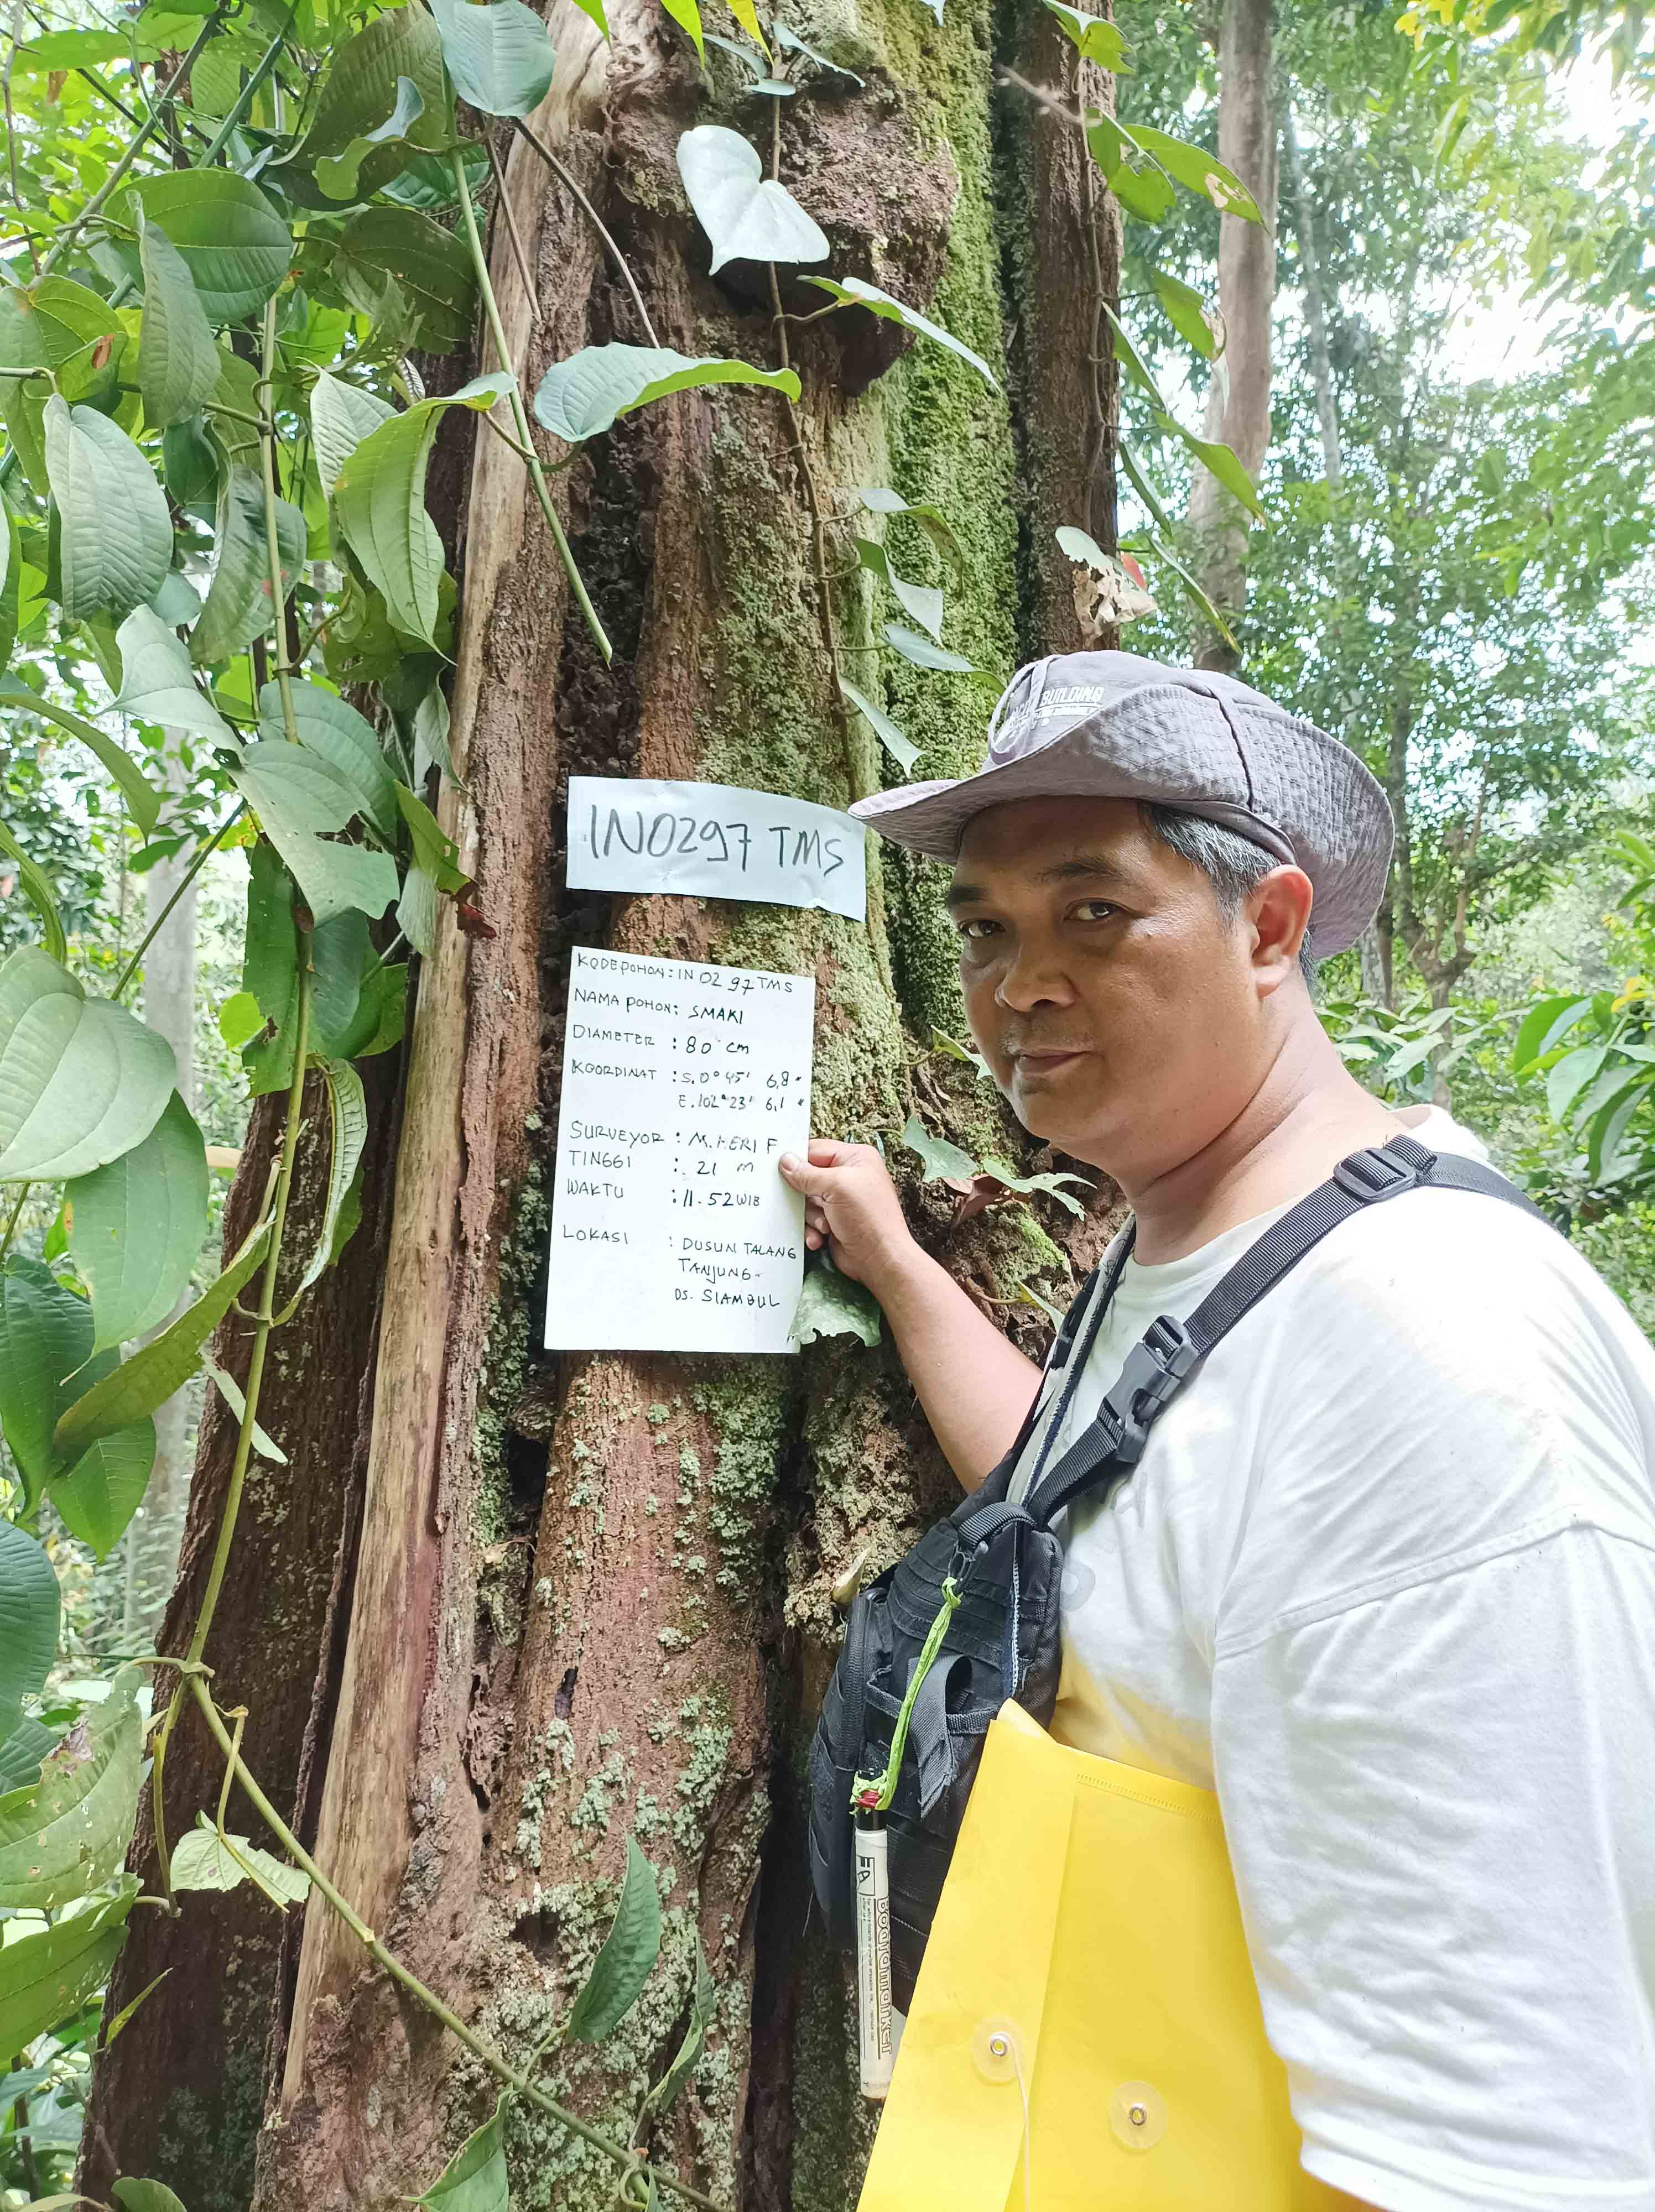 BUILDING
IN0297 TMS
KODEPOHON : IN 02 97 TMS
NAMA POHON : SMAKI
DIAMETER : 80 cm
KOORDINAT : S. 0° 45' 6,8"
E. 102° 23' 6,1"
SURVEYOR : M. HERI F
TINGGI : 21 m
WAKTU : 11.52 WIB
LOKASI : DUSUN TALANG
TANJUNG
DS. SIAMBUL
Boardmarker